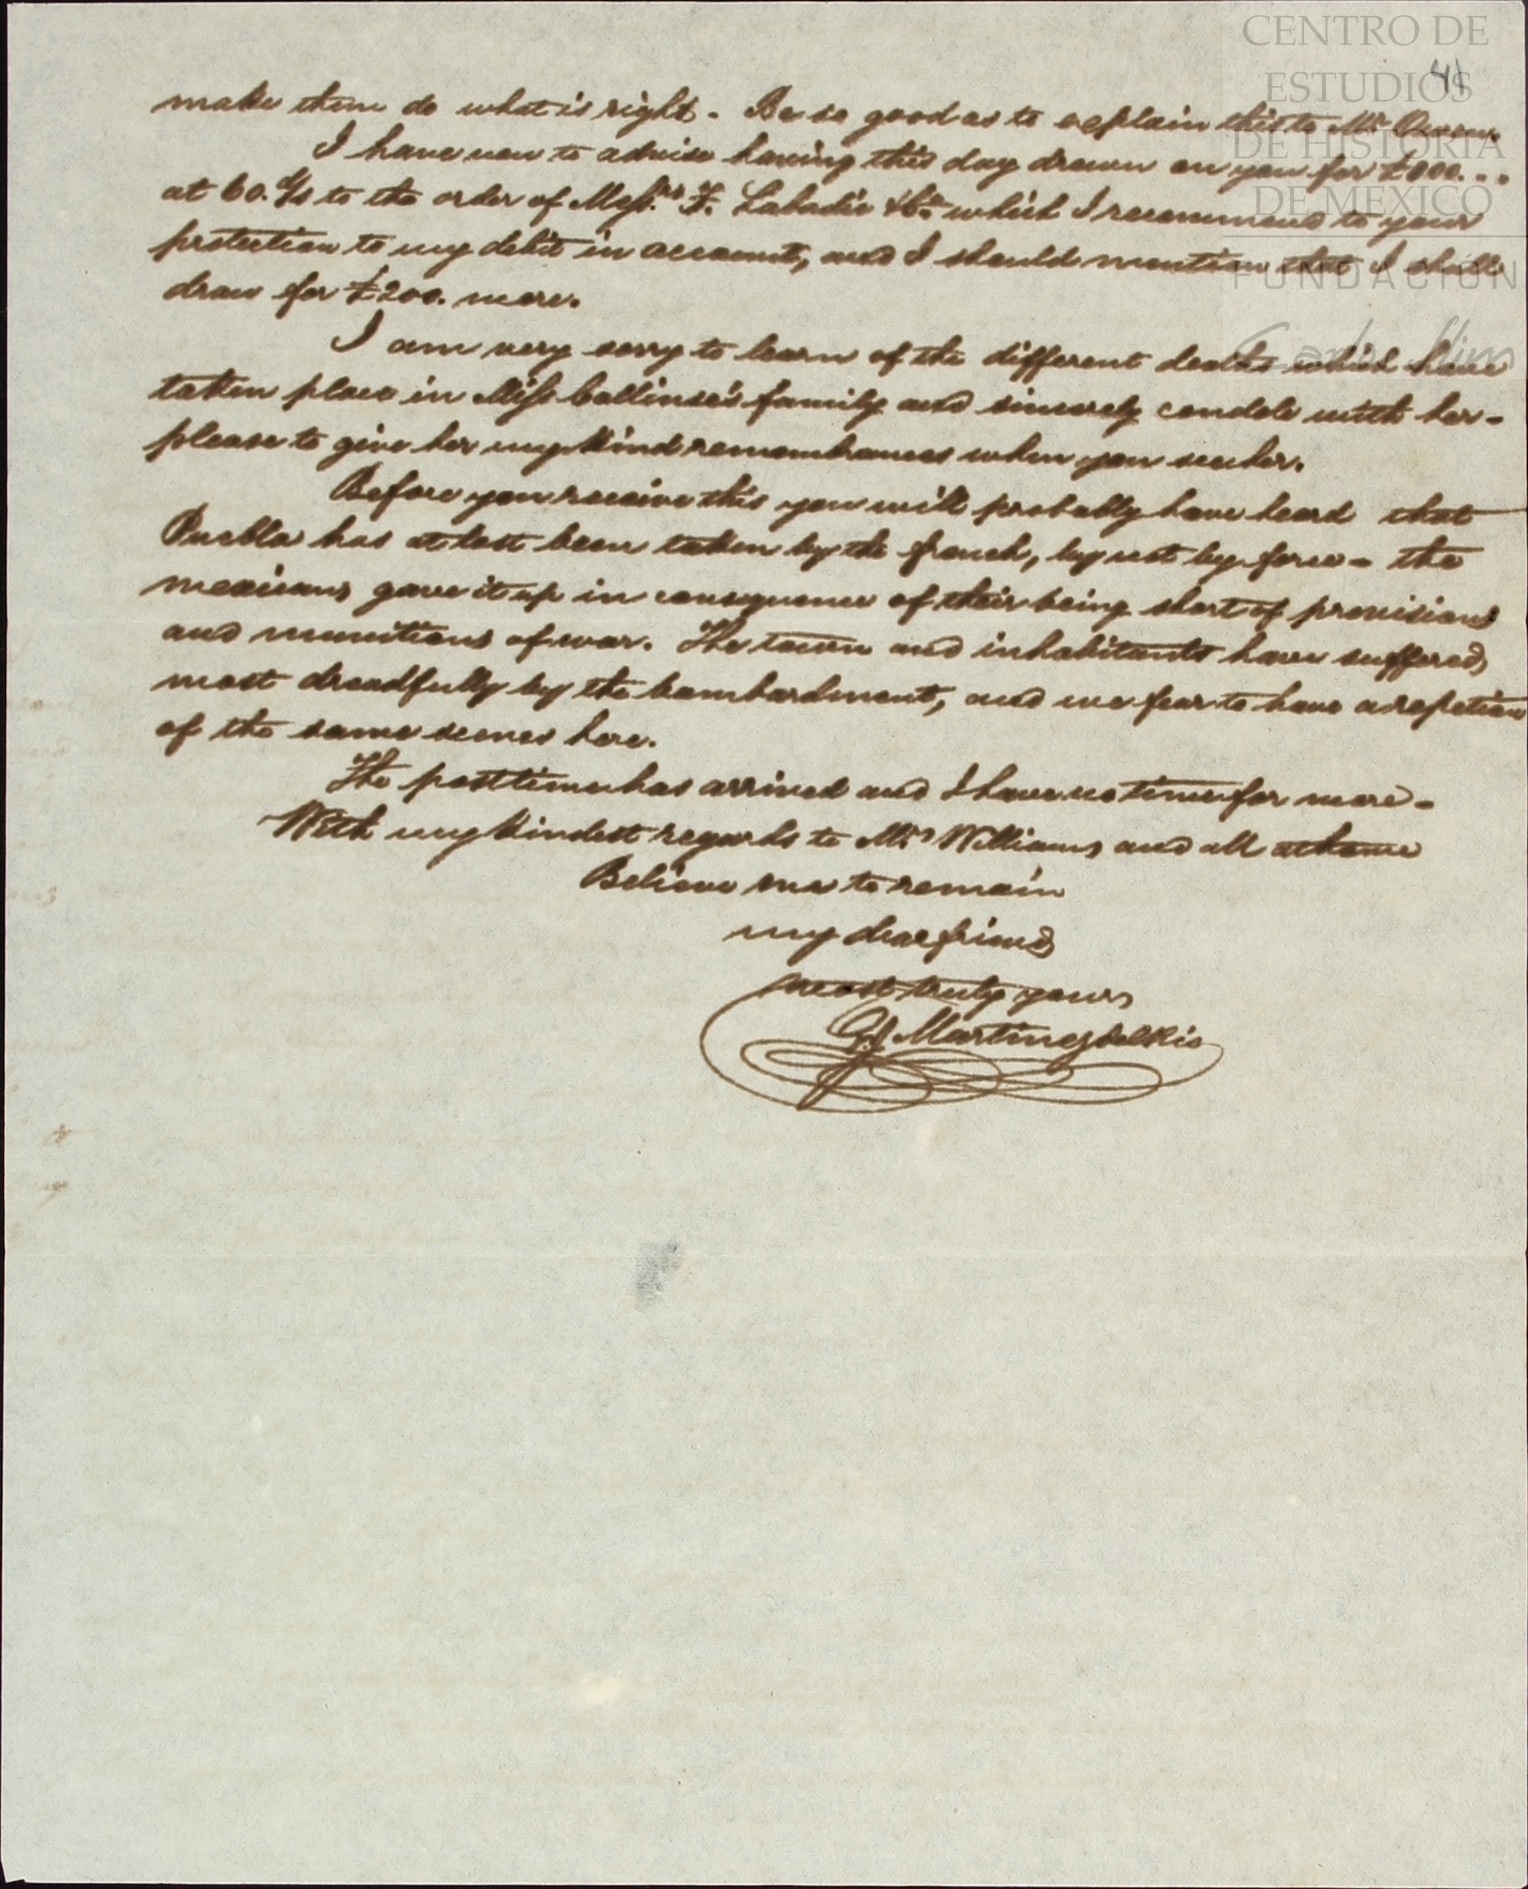 CENTRO DE
ESTUDIOS
DE HISTORIA
DE MEXICO
FUNDACIÓN
Carlos Slim
41
make them do what is right. Be so good as to explain this to Mr.
I have now to advise having this day drawn on you for
at 60. d/s to the order of Messrs. F. Labadie & Co. which I recommend to your
protection to my debit in account, and I should mention that I shall
draw for £200. more.
I am very sorry to learn of the different deaths which have
taken place in Miss Collinse's family and sincerely condole with her -
please to give her my kind remembrances when you see her.
Before you receive this you will probably have heard that
Puebla has at last been taken by the french, by not by force - the
mexicans gave it up in consequence of their being short of provisions
and munitions of war. The town and inhabitants have suffered
most dreadfully by the bombardment, and we fear to have a repetion
of the same scenes here.
The post time has arrived and I have no time for more -
With my kindest regards to Mrs Williams and all at home
Believe me to remain
my dear friend
most truly yours
Martinez del Rio